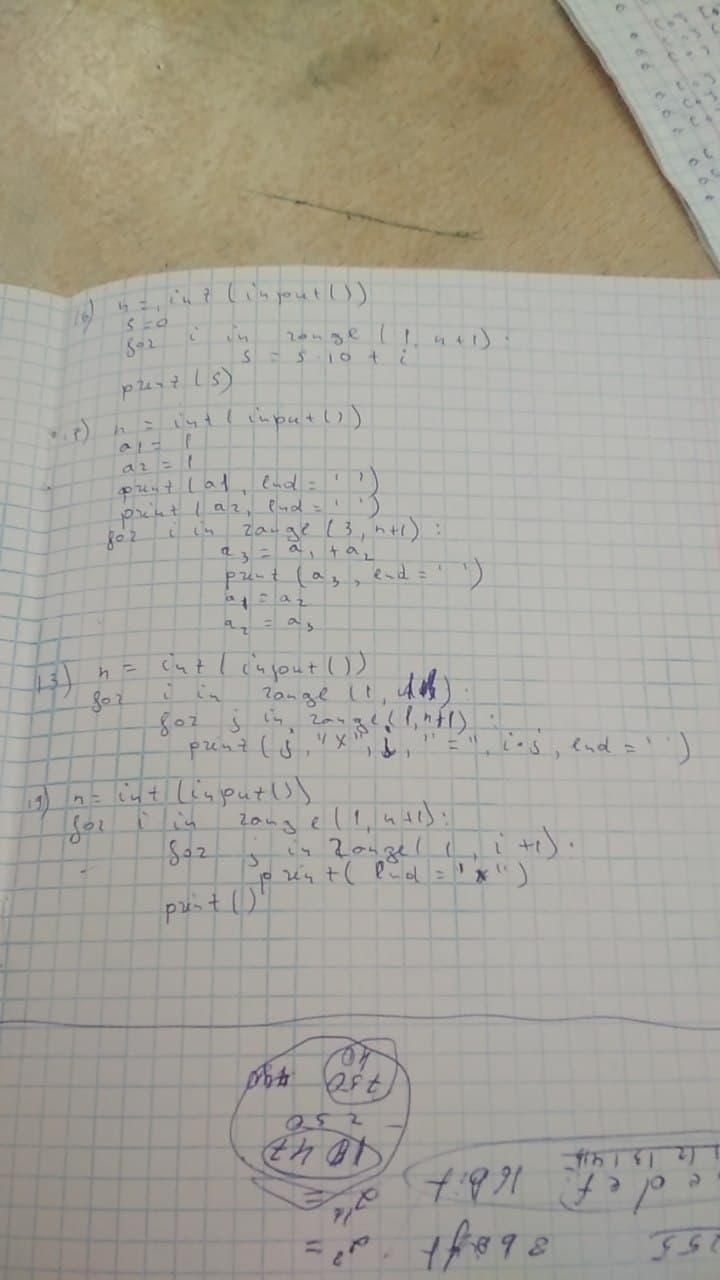 16) n = int(input())
s=0
for i in range (1, n+1):
s = s·10 + i
print(s)
n = int(input())
a1 = 1
a2 = 1
print(a1, end = ' ')
print(a2, end = ' ')
for i in range (3, n+1):
a3 = a1 + a2
print (a3, end = ' ')
a1 = a2
a2 = a3
13) n = int(input())
for i in range (1,
for j in range(1, n+1) :
print (j, "x", i, "=", i·j, end = ' ')
19) n = int(input())
for i in range (1, n+1):
for j in range(1, i+1):
print( end = "*")
print()
40
750
250
1047
2¹⁶ =
2³ =
16 bit